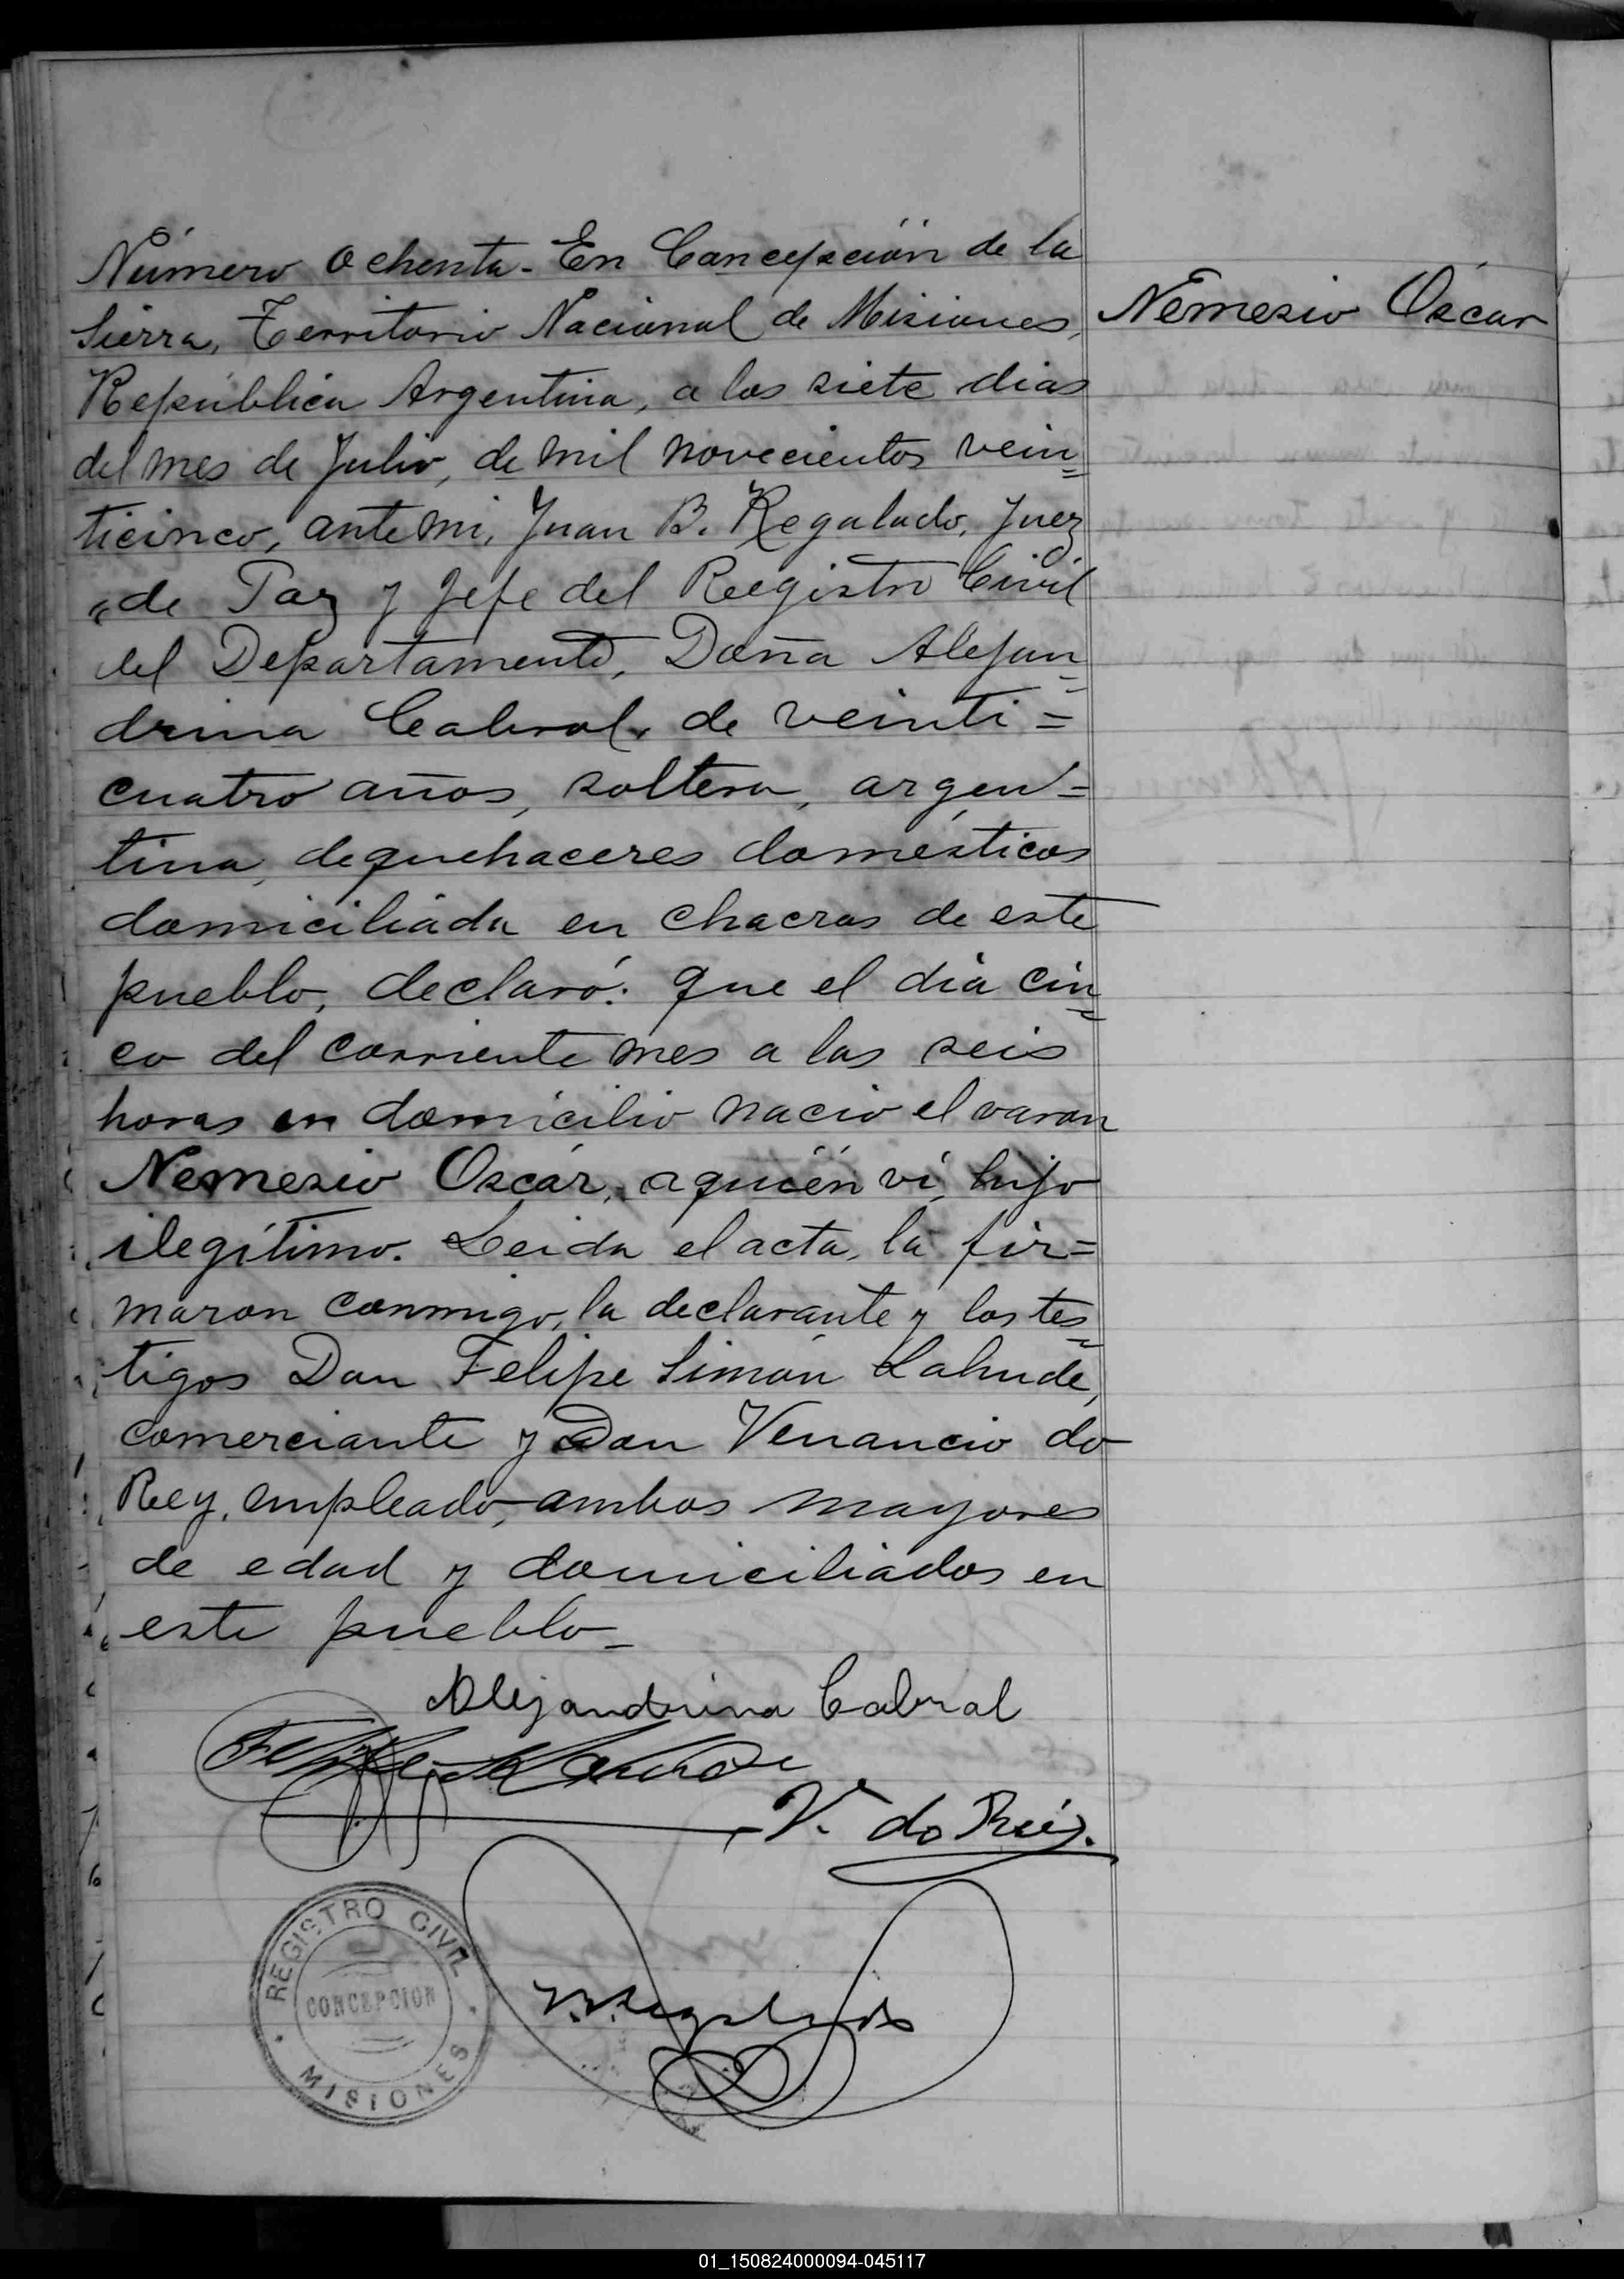 Número Ochenta - En Concepción de la
Sierra, Territorio Nacional de Misiones,
Nemesio Oscar
República Argentina, a los siete dias
del mes de Julio, de mil novecientos vein=
ticinco, ante mi, Juan B. Regalado, Juez
de Paz y Jefe del Registro Civil
del Departamento, Doña Alejan=
drina Cabral, de veinti=
cuatro años, soltera, argen=
tina, de quehaceres domésticos
domiciliada en chacras de este
pueblo, declaró: que el dia cin=
co del corriente mes a las seis
horas en domicilio nacio el varon
Nemesio Oscár, a quién ví, hijo
ilegítimo. Leida el acta, la fir=
maron conmigo, la declarante y los tes=
tigos Don Felipe Simón Lahude,
comerciante y Don Venancio do
Rey, empleado, ambos mayores
de edad y domiciliados en
este pueblo -
Alejandrina Cabral
Felipe S Lahude
V. do Rey.
REGISTRO CIVIL
CONCEPCION
MISIONES
01_150824000094-045117